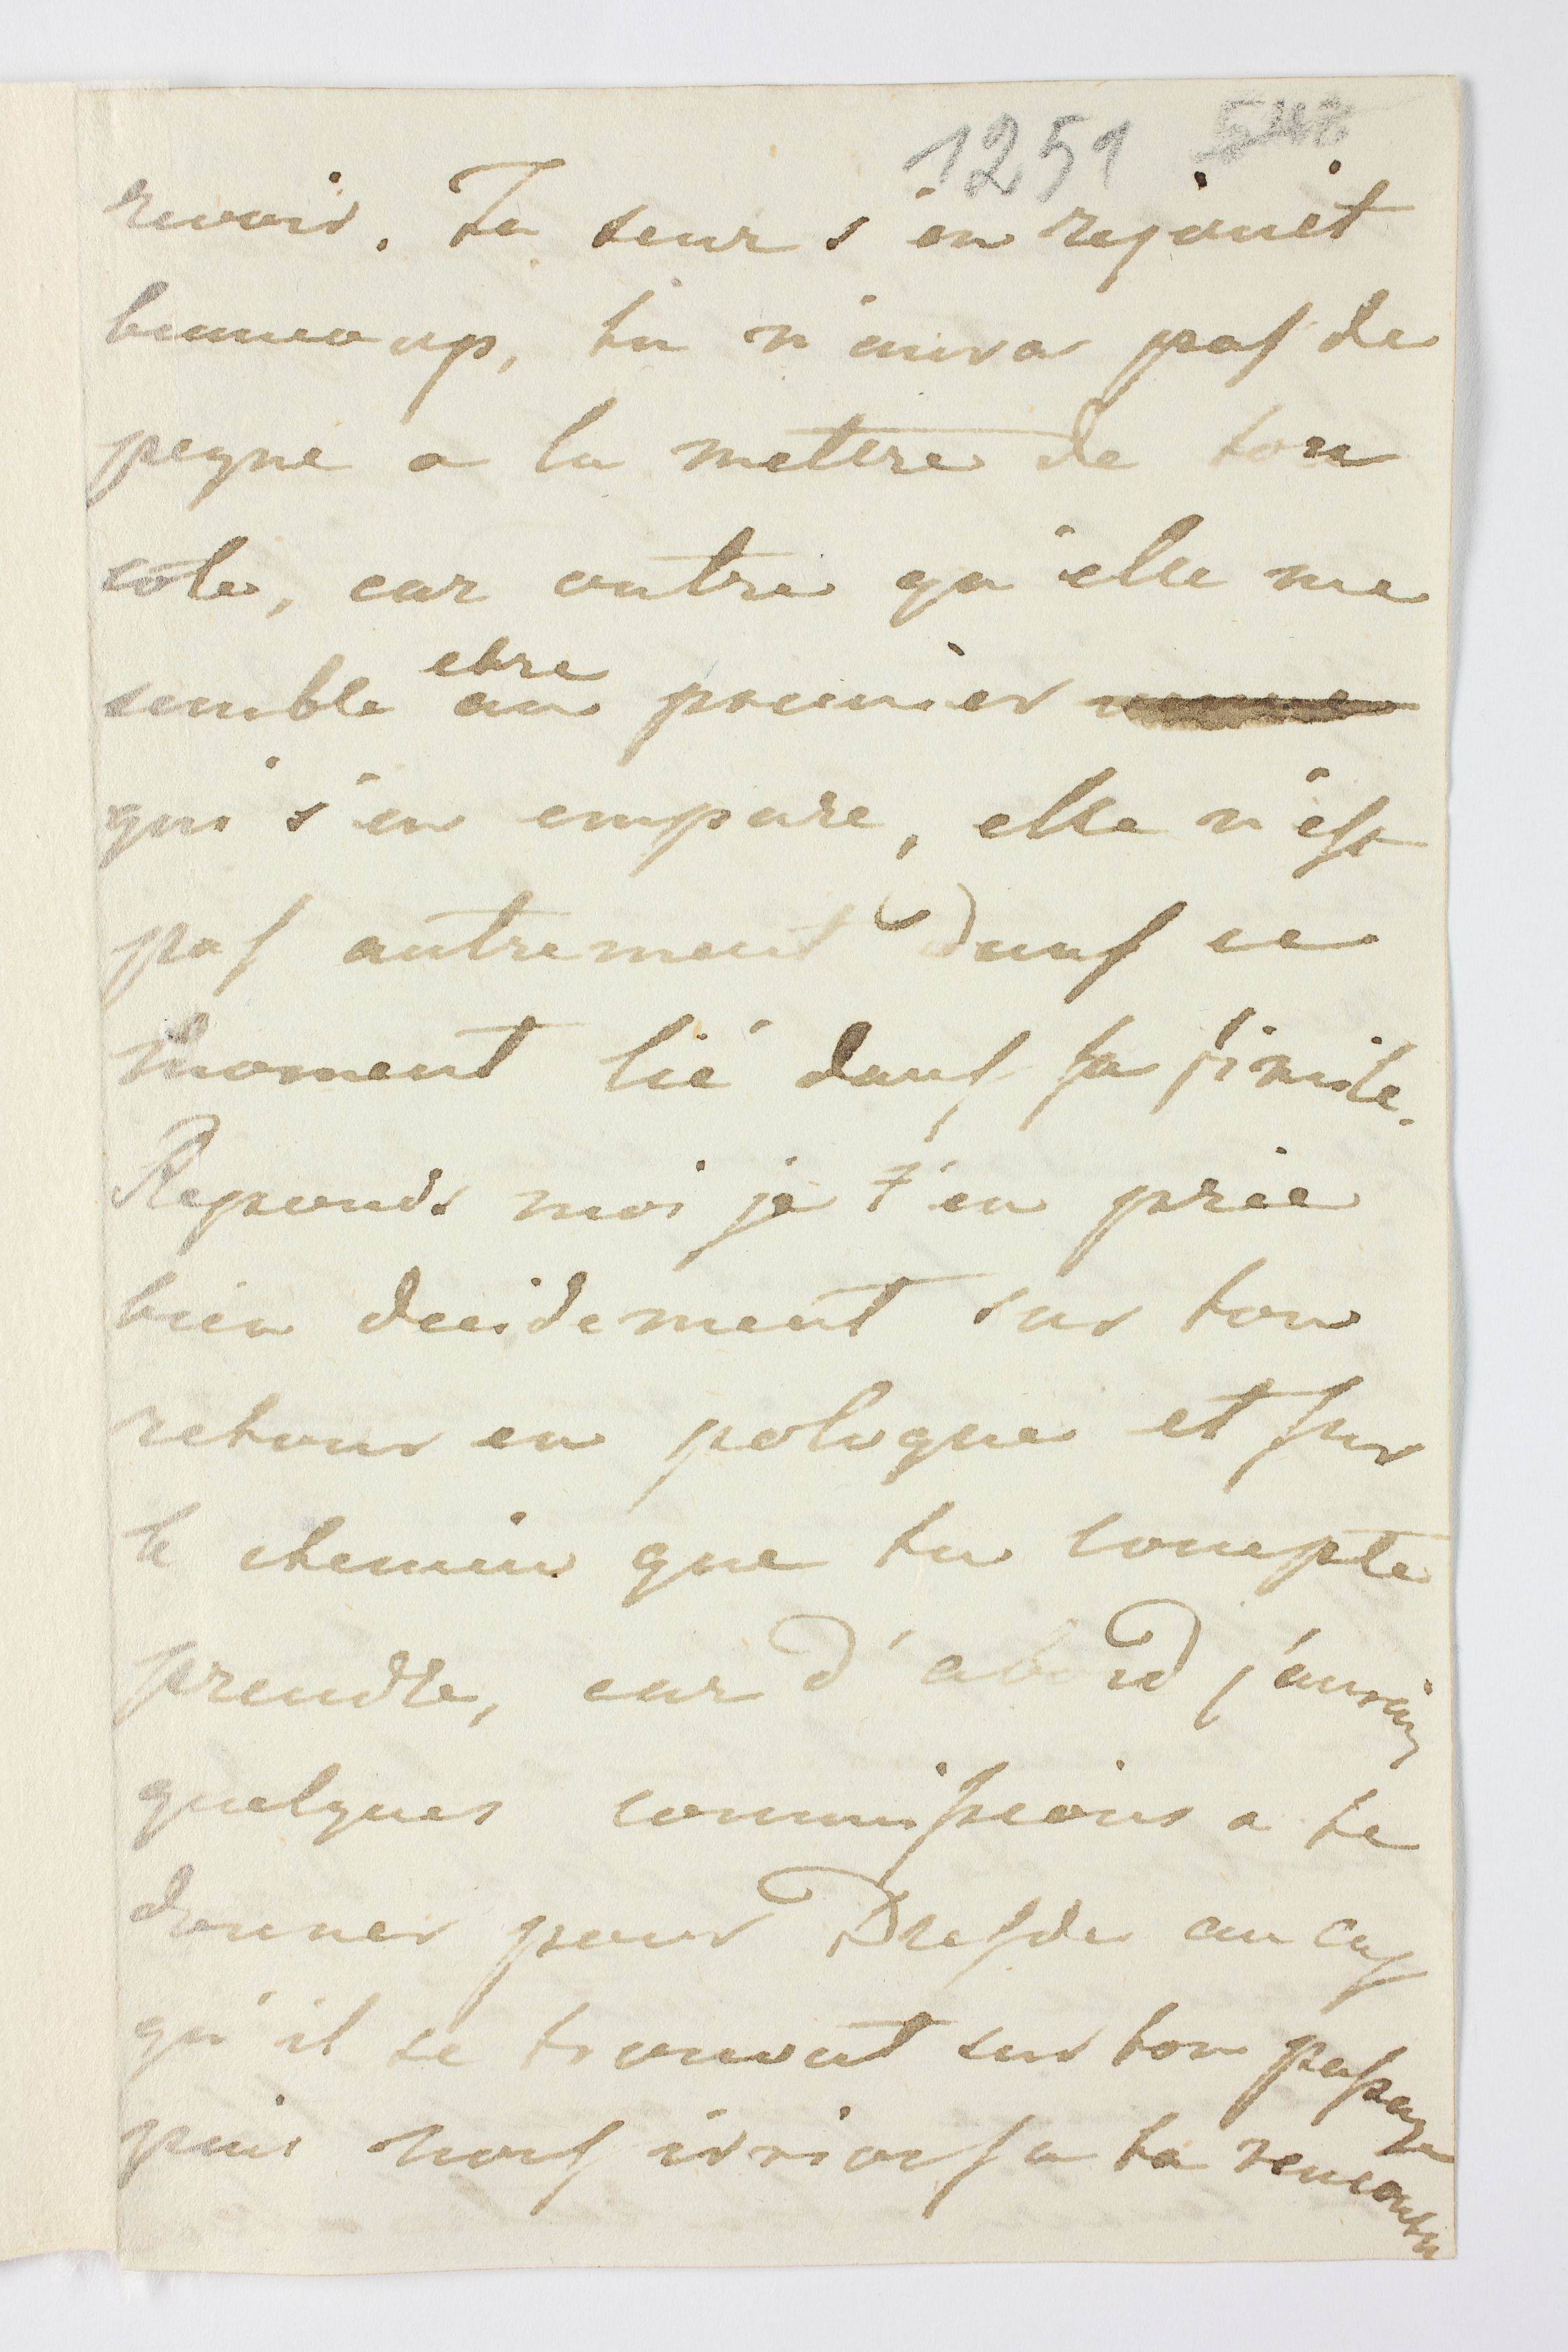 1251 548
revoir. Ta seur s'en rejouit
beaucoup, tu n'aura pas de
peyne a la mettre de ton
cote, car outre qu'elle me
semble etre au premier
qui s'en empare, elle n'est
pas autrement dans ce
moment lié dans sa
Reponds moi je t'en prie
bien decidement sur ton
retour en pologne et sur
le chemin que tu compte
prendre, car d'abord j'aurais
quelques commissions a te
donner pour Dresde au cas
qu'il se trouvat sur ton passage
puis nous irrions a ta rencontre